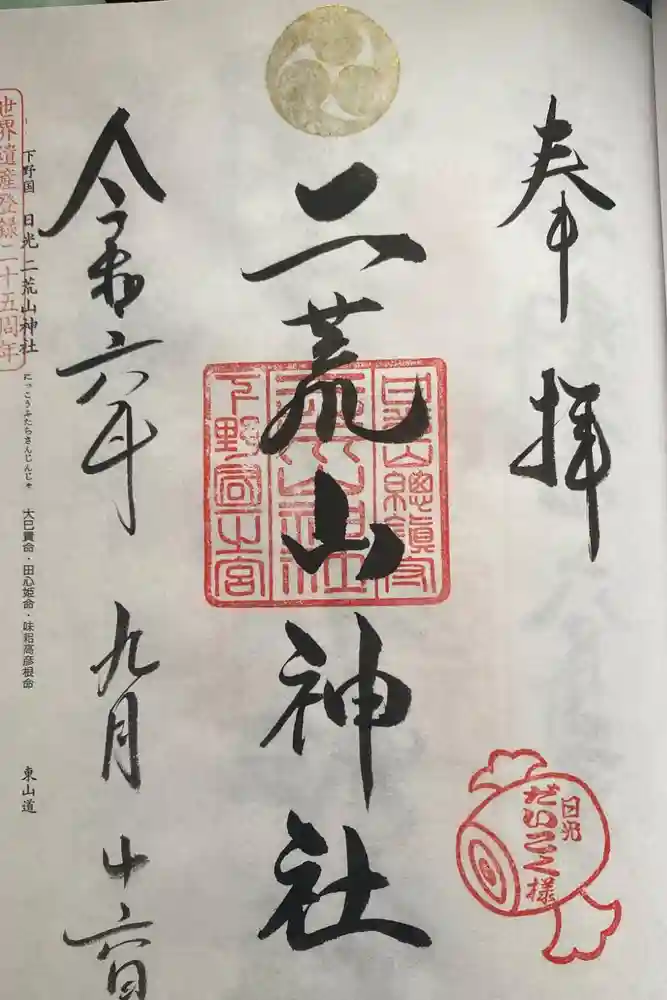 奉拝
日光
だいこく様
二荒山神社
日光山總鎮守
二荒山神社
下野國一之宮
令和六年 九月 十六日
下野国 日光 二荒山神社 にっこうふたらさんじんじゃ 大己貴命・田心姫命・味耜高彦根命 東山道
世界遺産登録二十五周年